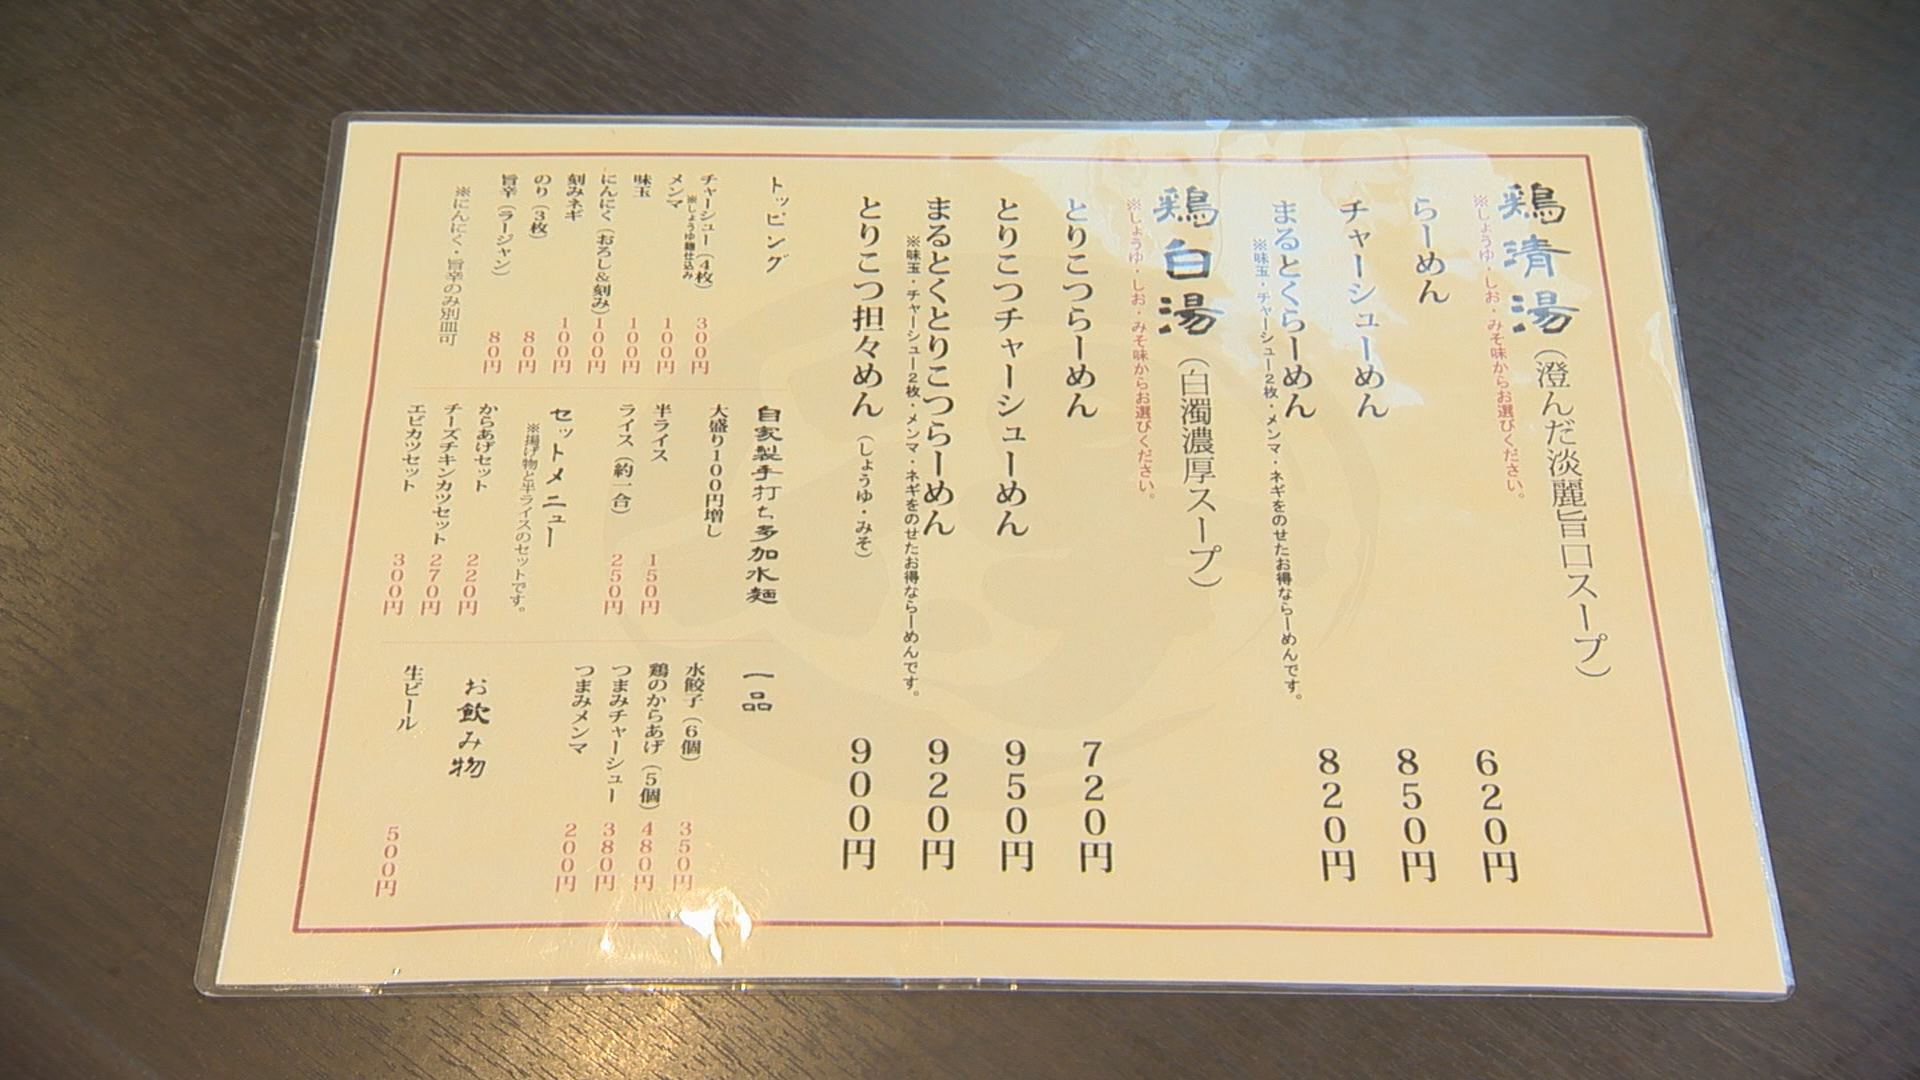 鶏清湯（澄んだ淡麗旨口スープ）
※しょうゆ・しお・みそ味からお選びください。
らーめん 620円
チャーシューめん 850円
まるとくらーめん 820円
※味玉・チャーシュー2枚・メンマ・ネギをのせたお得ならーめんです。
鶏白湯（白濁濃厚スープ）
※しょうゆ・しお・みそ味からお選びください。
とりこつらーめん 720円
とりこつチャーシューめん 950円
まるとくとりこつらーめん 920円
※味玉・チャーシュー2枚・メンマ・ネギをのせたお得ならーめんです。
とりこつ担々めん（しょうゆ・みそ） 900円
トッピング
チャーシュー（4枚） 300円
※しょうゆ麹仕込み
メンマ 100円
味玉 100円
にんにく（おろし&刻み） 100円
刻みネギ 100円
のり（3枚） 80円
旨辛（ラージャン） 80円
※にんにく・旨辛のみ別皿可
自家製手打ち多加水麺
大盛り100円増し
半ライス 150円
ライス（約一合） 250円
セットメニュー
※揚げ物と半ライスのセットです。
からあげセット 220円
チーズチキンカツセット 270円
エビカツセット 300円
一品
水餃子（6個） 350円
鶏のからあげ（5個） 480円
つまみチャーシュー 380円
つまみメンマ 200円
お飲み物
生ビール 500円